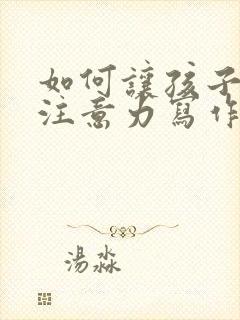 如何讓孩子
注意力寫作
湯淼